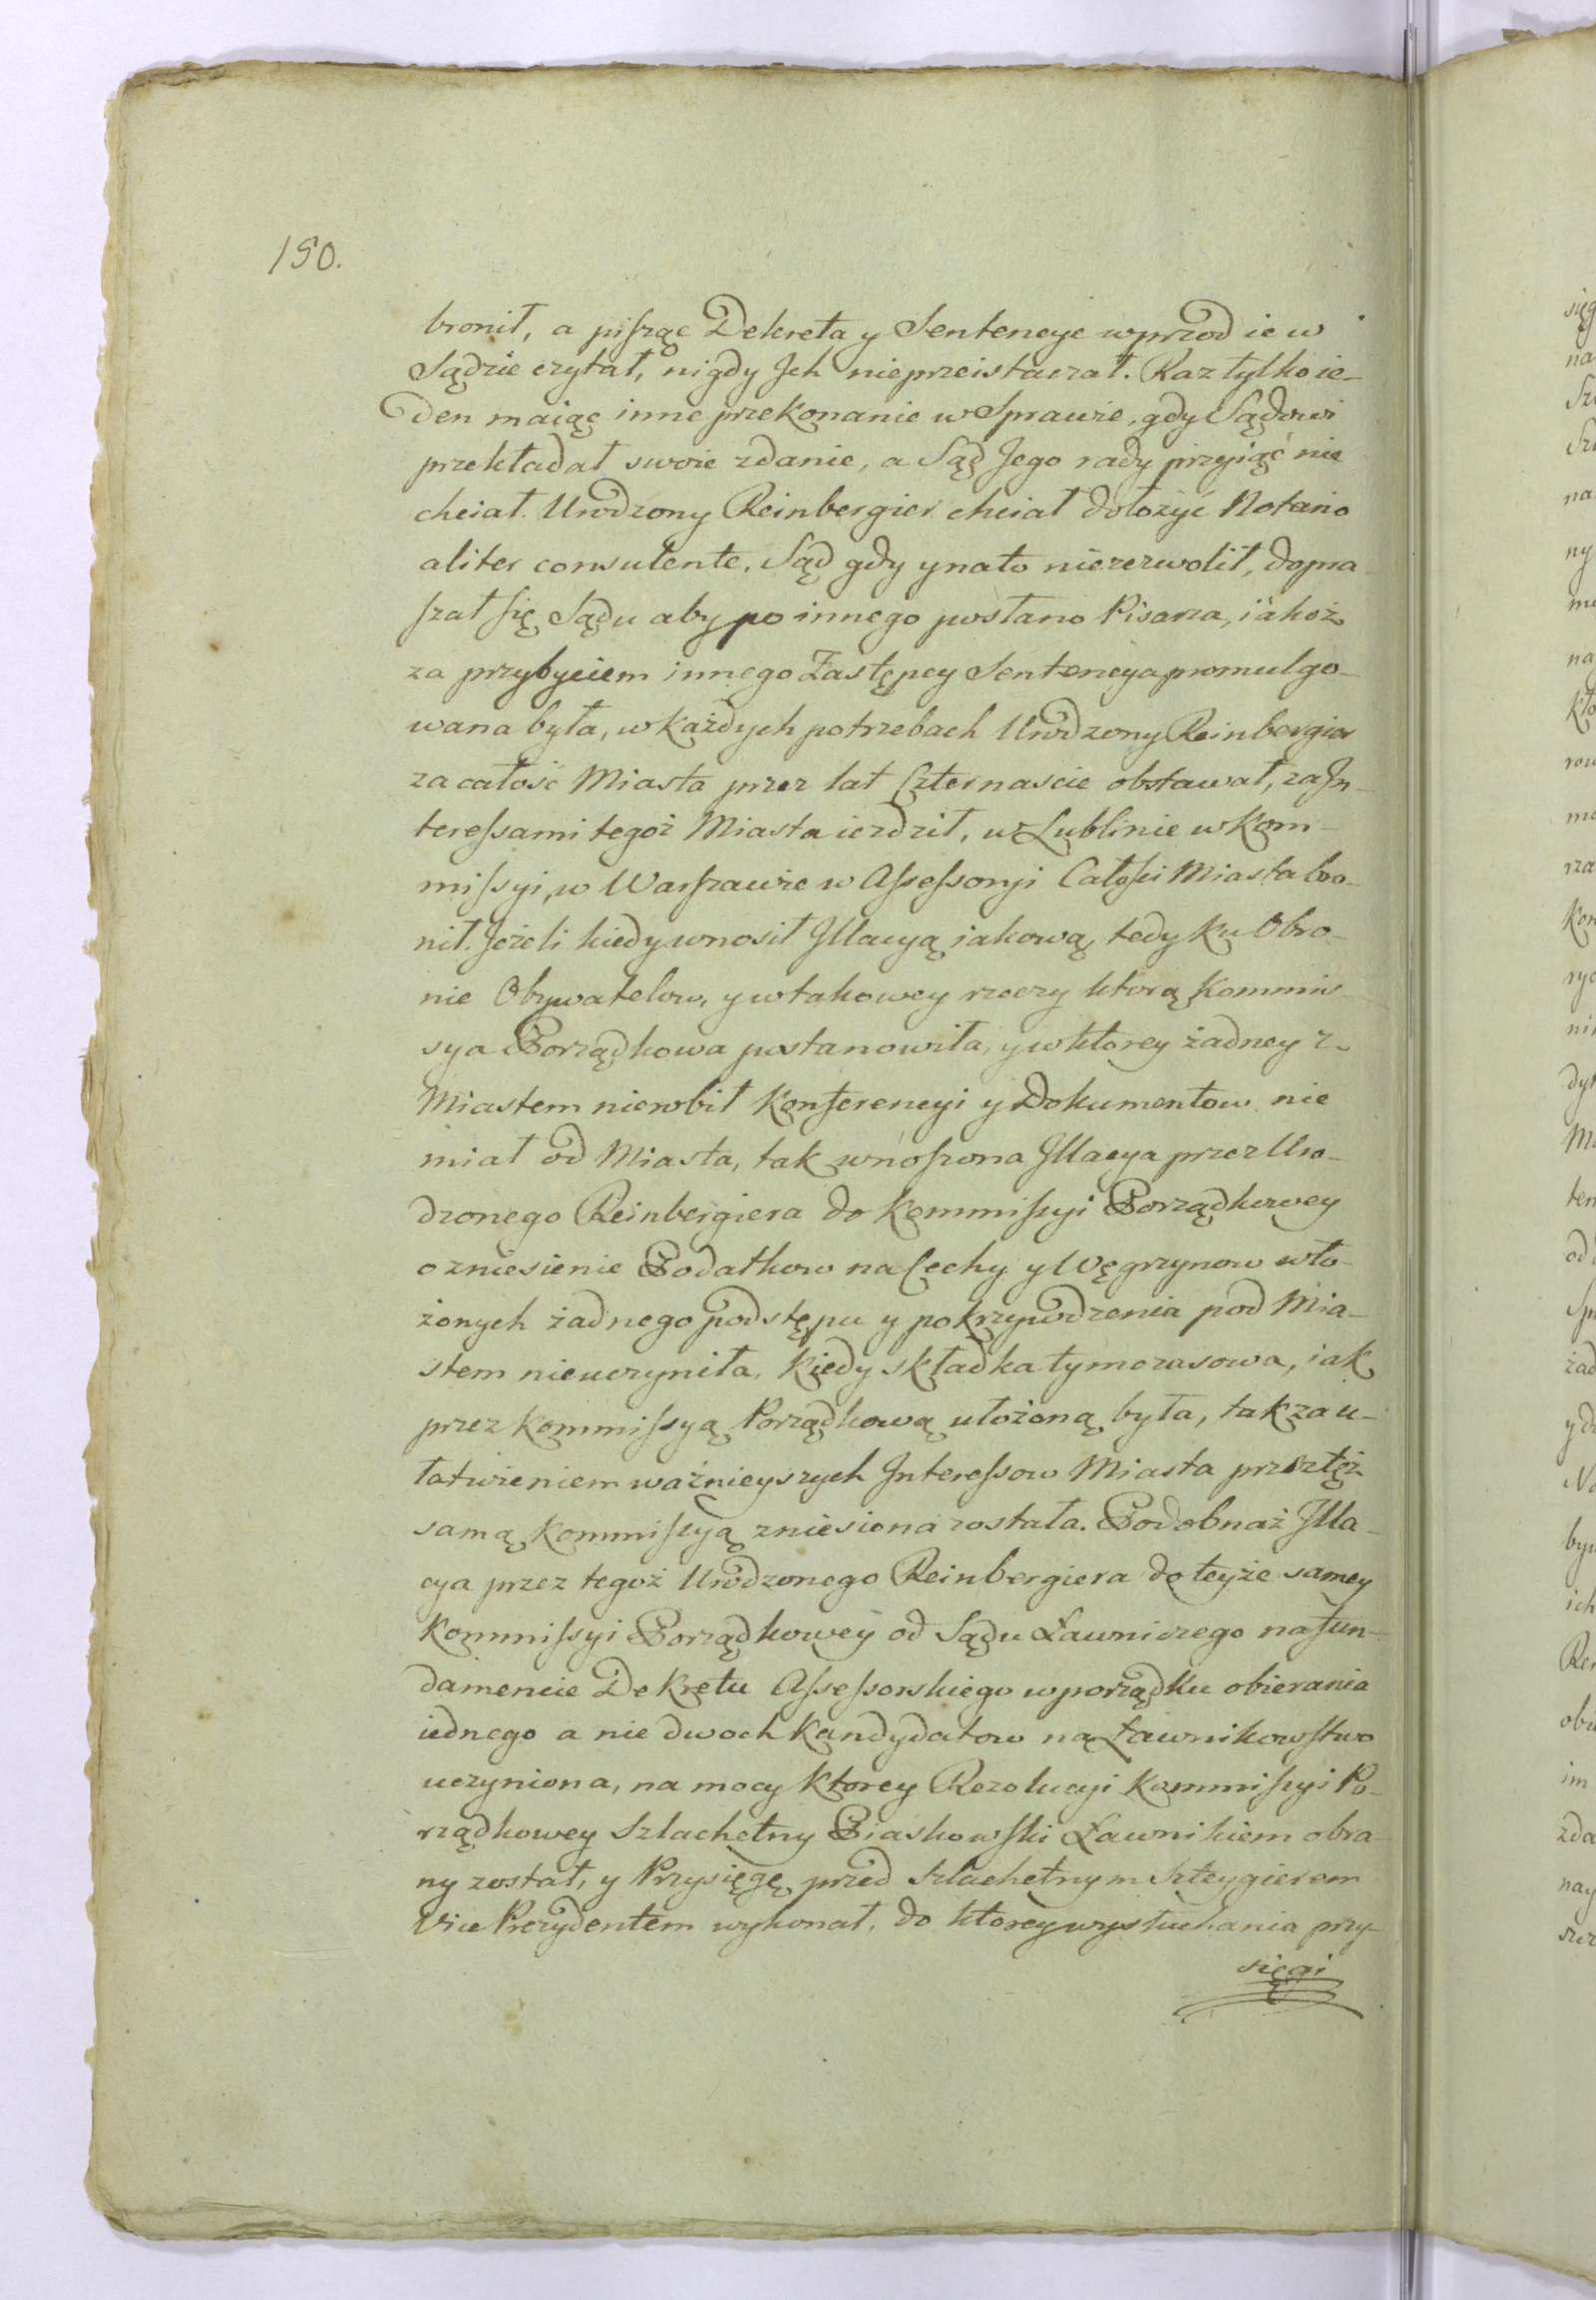 150.
bronił, a pisząc Dekreta y Sentencye wprzod ie w
Sądzie czytał, nigdy Ich nieprzeistaczał. Raz tylko ie-
den maiąc inne przekonanie w Sprawie, gdy Sądowi
przekładał swoie zdanie, a Sąd Jego rady przyiąć nie
chciał. Urodzony Reinbergier chciał dołożyć Notario
aliter consulente. Sąd gdy y nato niezezwolił, dopra-
szał się Sądu aby po innego posłano Pisarza, iakoż
za przybyciem innego Zastępcy Sentencya promulgo-
wana była, w każdych potrzebach Urodzony Reinbergier
za całość Miasta przez lat Czternascie obstawał, za In-
teressami tegoż Miasta iezdził, w Lublinie w Kom-
missyi, w Warszawie w Assessoryi Całości Miasta bro-
nił. Jeżeli kiedy wnosił Illacyą iakową, tedy ku Obro-
nie Obywatelow, y w takowey rzeczy ktorą Kommis-
sya Porządkowa postanowiła, y w ktorey żadney z
Miastem nierobił Konferencyi y Dokumentow nie
miał od Miasta, tak wnoszona Illacya przez Uro-
dzonego Reinbergiera do Kommissyi Porządkowey
o zniesienie Podatkow na Cechy y Węgrzynow wło-
żonych żadnego podstępu y pokrzywdzenia pod Mia-
stem nieuczyniła, kiedy składka tymczasowa, iak
przez Kommissyą Porządkową ułożoną była, tak za u-
łatwieniem ważnieyszych Interessow Miasta przez tęż
samą Kommissyą zniesiona została. Podobnaż Illa-
cya przez tegoż Urodzonego Reinbergiera do teyże samey
Kommissyi Porządkowey od Sądu Ławniczego na fun-
damencie Dekretu Assessorskiego w porządku obierania
iednego a nie dwoch Kandydatow na Ławnikowstwo
uczyniona, na mocy ktorey Rezolucyi Kommissyi Po-
rządkowey Szlachetny Piaskowski Ławnikiem obra-
ny został, y Przysięgę przed Szlachetnym Szteygierem
Vice Prezydentem wykonał, do ktorey wysłuchania przy-
sięgi